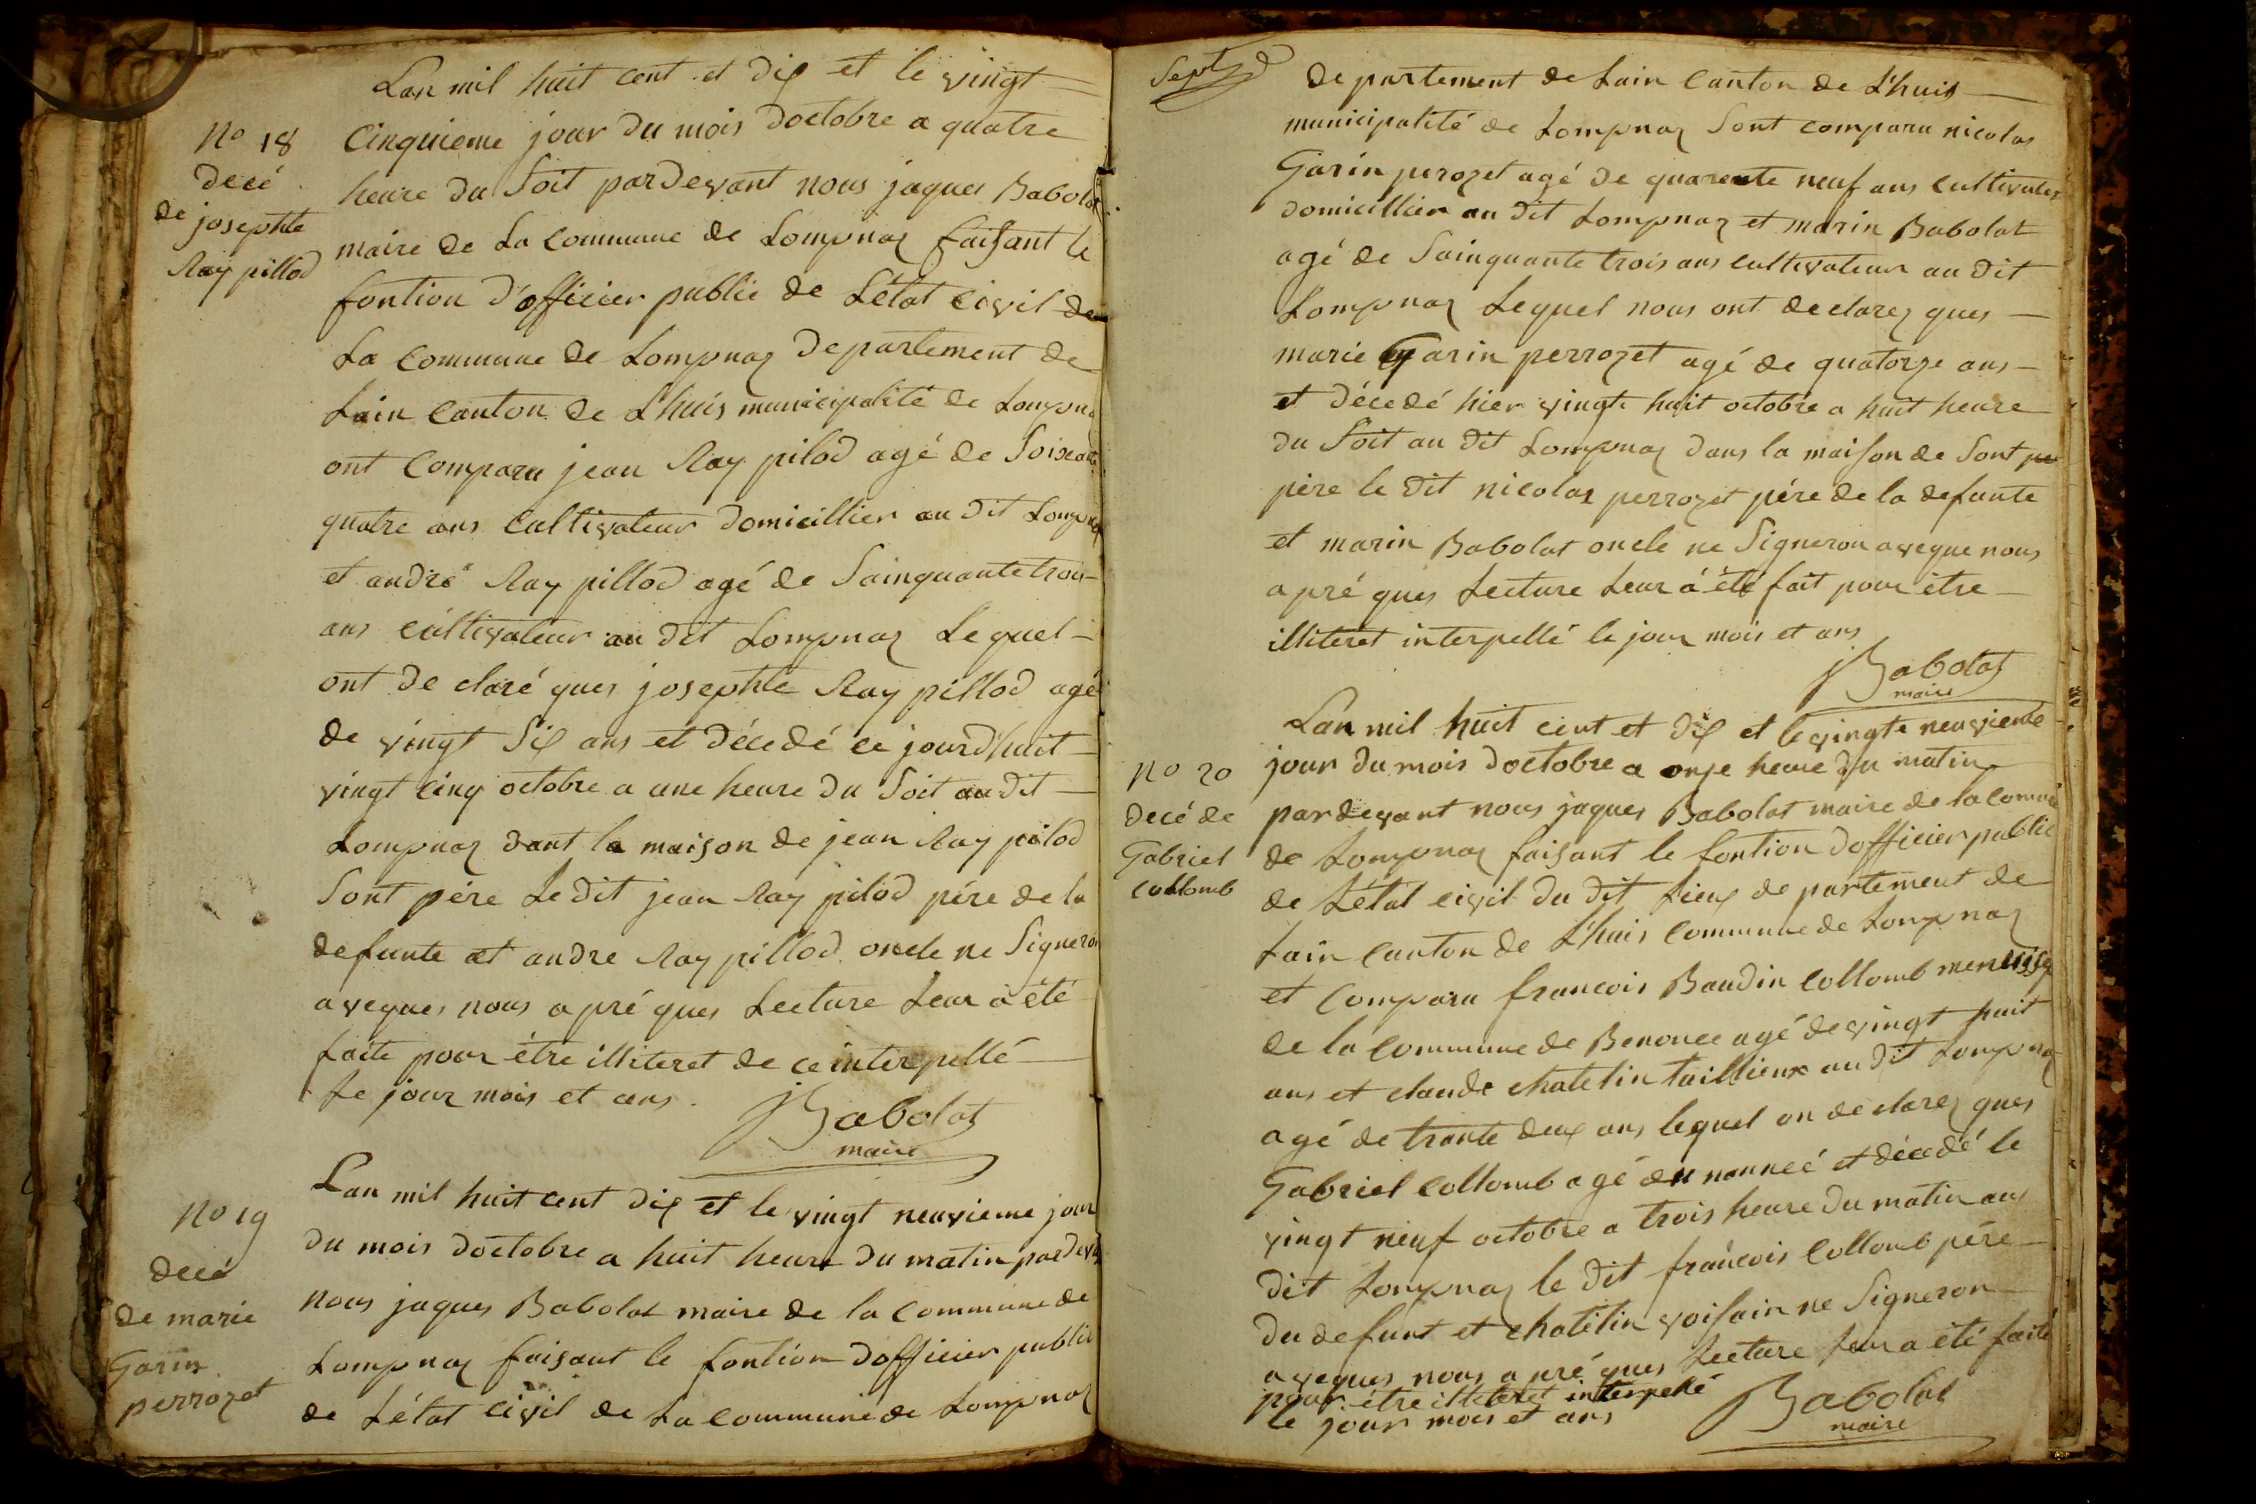 Lan mil huit cent et dix et le vingt
No 18
decé
de josephte
Ray pillod
Cinquieme jour du mois doctobre a quatre
heure du Soit pardevant nous jaques Babolat
maire de La Commune de Lompnaz faisant le
fontion d'officier public de Létat civil de
La Commune de Lompnaz departement de
Lain Canton de Lhuis municipalité de Lompna
ont Comparu jean Ray pilod agé de Soixante
quatre ans Cultivateur domicillier au dit Lompnaz
et andré Ray pillod agé de Sainquante trois
ans cultivateur au dit Lompnaz Lequel
ont de claré ques josephte Ray pillod agé
de vingt Six ans et décedé ce jourdhuit
vingt cinq octobre a une heure du Soit au dit
Lompnaz dant la maison de jean Ray pilod
Sont pére Le dit jean Ray pilod pére de la
defunte et andre Ray pillod oncle ne Signeron
aveques nous a pré ques Lecture Leur a été
faite pour étre illiteret de ce interpellé
Le jour mois et ans.
JBabolat
maire
No 19
decé
de marie
Garin
perrozet
Lan mil huit cent dix et le vingt neuvieme jour
du mois doctobre a huit heure du matin pardeva
nous jaques Babolat maire de la Commune de
Lompnaz faisant le fontion dofficier public
de Létat civil de La commune de Lompnaz
Sept
departement de Lain Canton de Lhuis
municipalité de Lompnaz Sont comparu nicolas
Garin perozet agé de quarente neuf ans cultivater
domicillier au dit Lompnaz et marin Babolat
agé de Sainquante trois ans cultivateur au dit
Lompnaz Lequel nous ont declarez ques
marie Garin perrozet agé de quatorze ans
et décedé hier vingt huit octobre a huit heure
du Soit au dit Lompnaz dans la maison de Sont pe
père le dit nicolas perrozet pére de la defunte
et marin Babolat oncle ne Signeron aveque nous
a pré ques Lecture Leur a été fait pour étre
illiteret interpellé le jour mois et ans
JBabolat
maire
No 20
decé de
Gabriel
collomb
Lan mil huit cent et dix et le vingt neuvieme
jour du mois doctobre a onze heure du matin
pardevant nous jaques Babolat maire de la Commune
de Lompnaz faisant le fontion dofficier public
de Létat civil du dit Lieux departement de
Lain Canton de Lhuis commune de Lompnaz
et Comparu francois Baudin Collomb
de la Commune de Benonce agé de vingt huit
ans et claude chatelin taillieur au dit Lompnaz
agé de trante deux ans lequel on declarez ques
Gabriel Collomb agé du nanneé et décedé le
vingt neuf octobre a trois heure du matin au
dit Lompnaz le dit francois Collomb pére
du defunt et chatilin voisain ne Signeron
aveques nous a pré ques Lecture Leur a été faite
pour étre illiteret interpellé
le jour mois et ans
JBabolat
maire